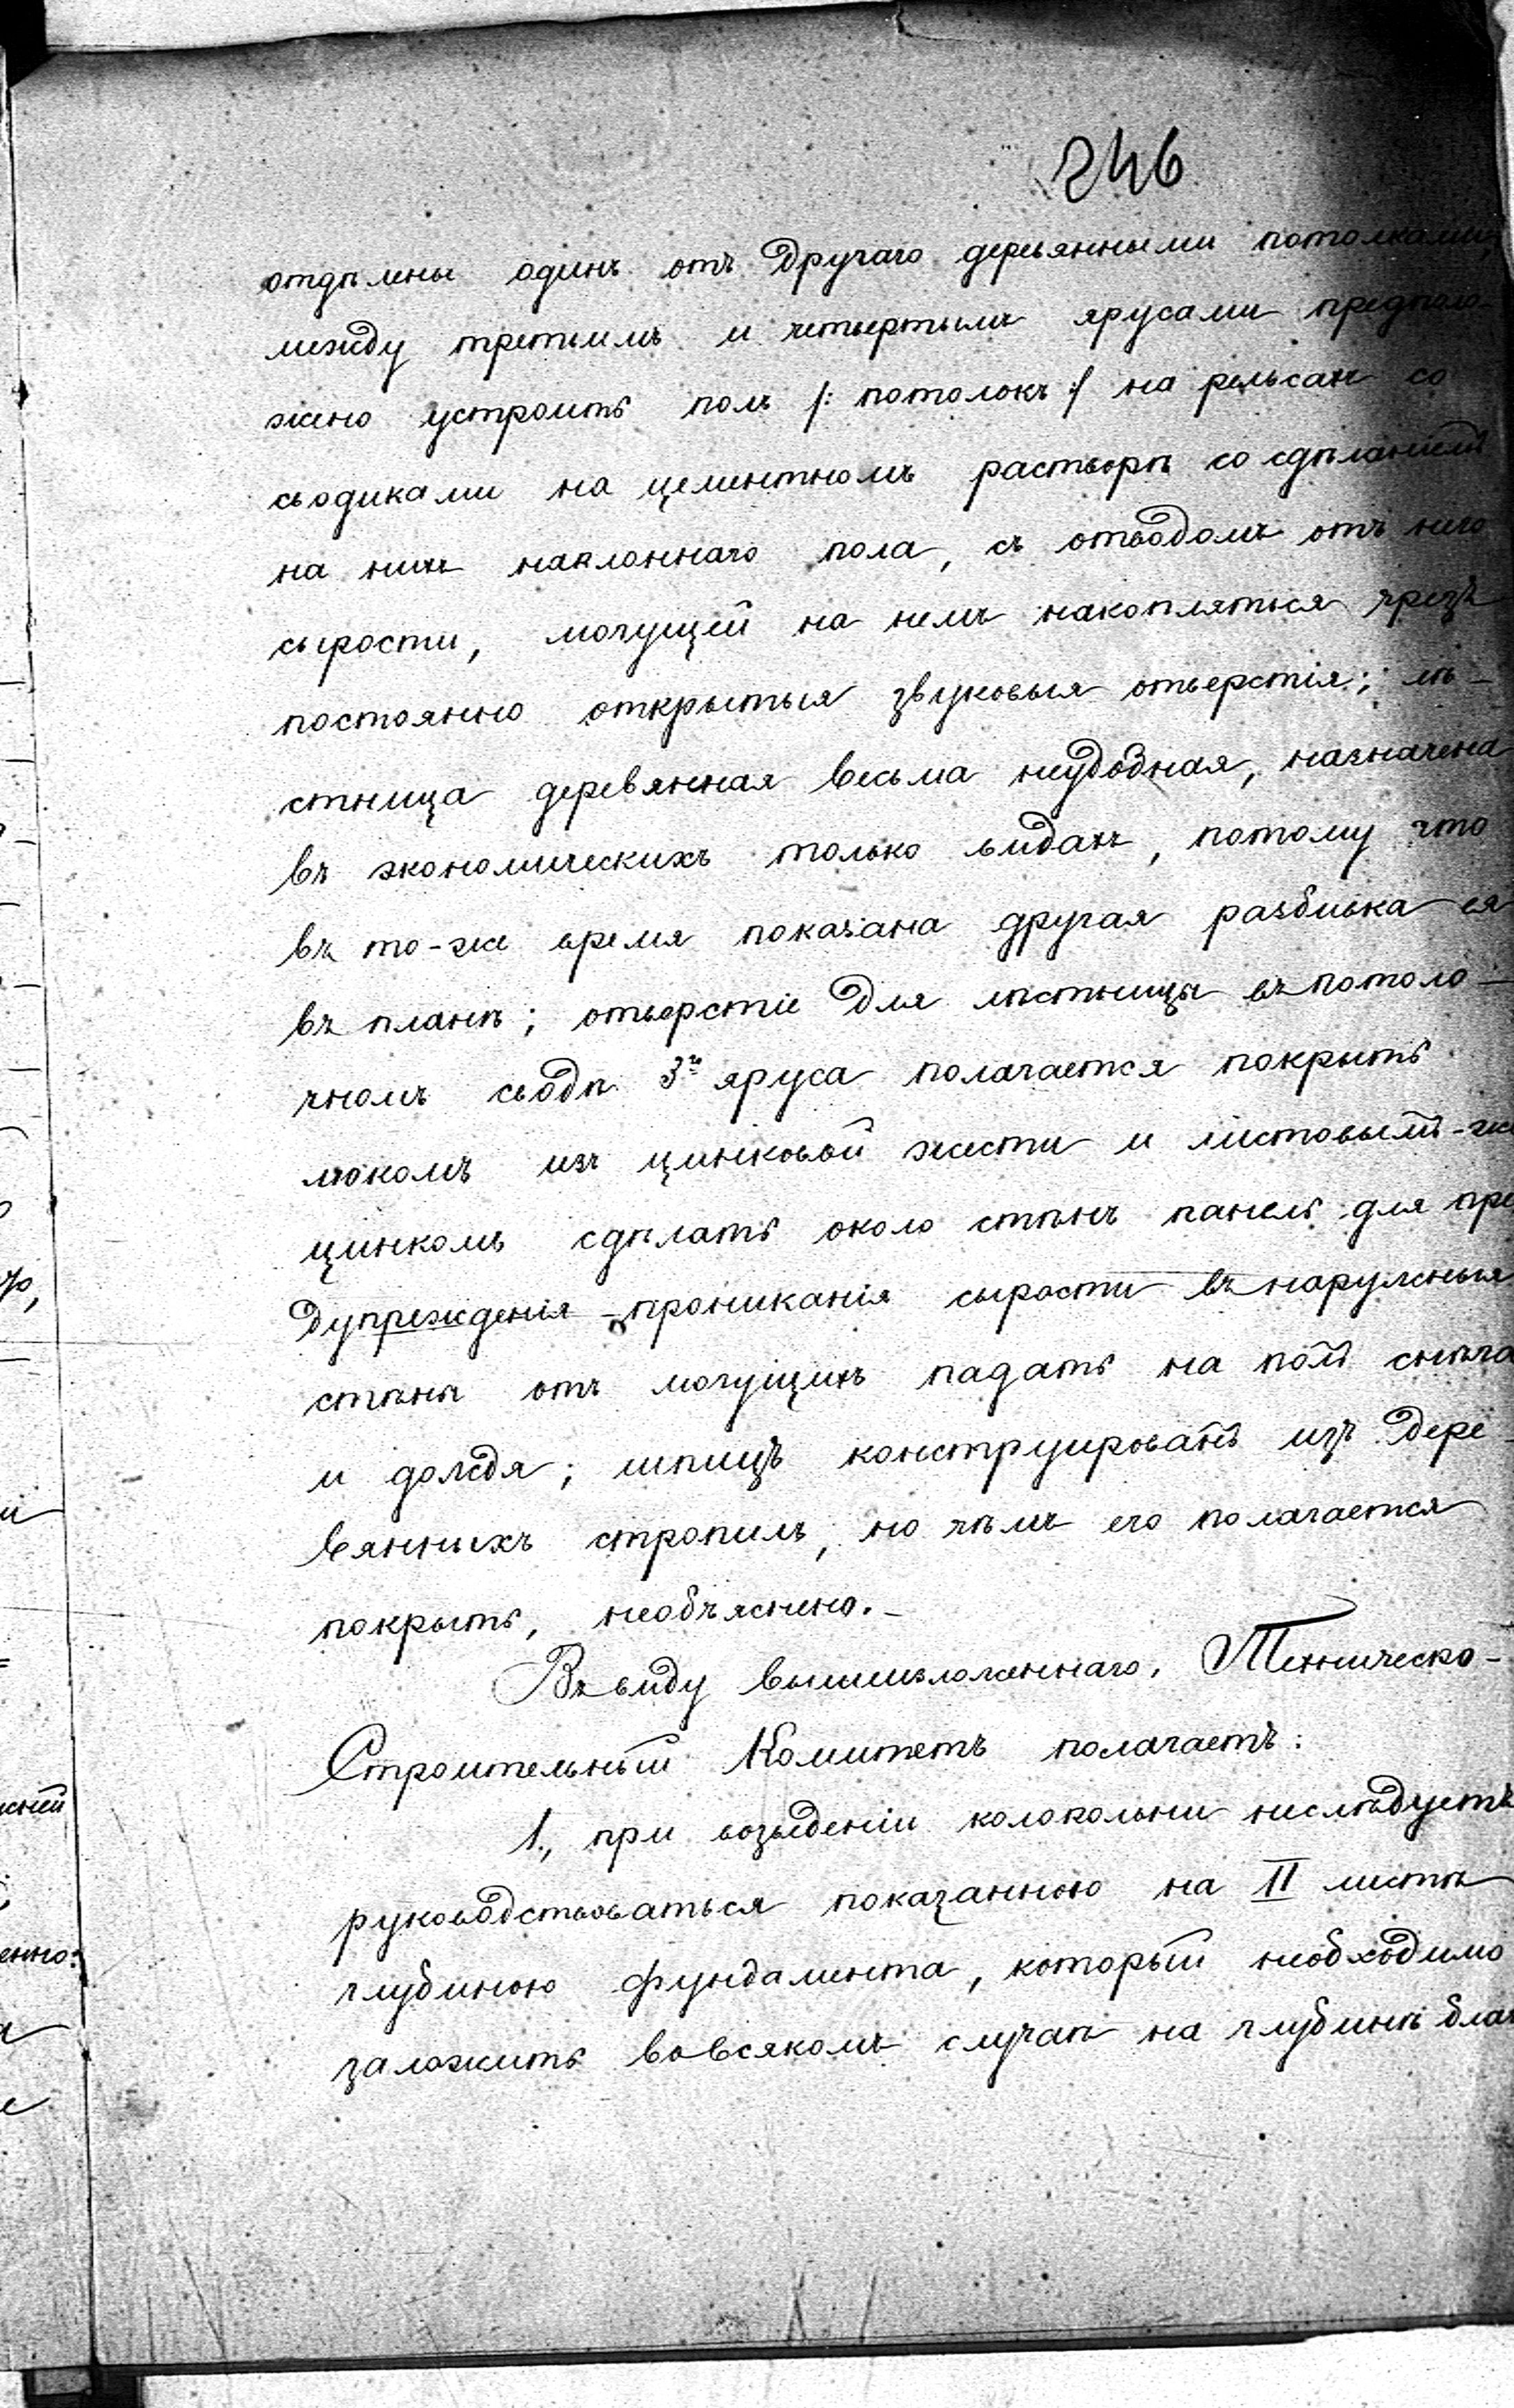 246
отдѣлены одинъ отъ другаго деревянными потолками,
между третьимъ и четвертымъ ярусами предполо-
жено устроить полъ /: потолокъ :/ на рельсахъ со
сводиками на цементномъ растворѣ со сдѣланіемъ
на нихъ наклоннаго пола, съ отводомъ отъ него
сырости, могущей на немъ накопляться чрезъ
постоянно открытыя звуковыя отверстія; лѣ-
стница деревянная весьма неудобная, назначена
въ экономическихъ только видахъ, потому что
въ то-же время показана другая разбивка ея
въ планѣ; отверстіе для лѣстницы въ потоло-
чномъ сводѣ 3го яруса полагается покрыть
люкомъ изъ цинковой жести и листовымъ-же
цинкомъ сдѣлать около стѣнъ панель для пре
дупрежденія прониканія сырости въ наружныя
стѣны отъ могущихъ падать на полъ снѣга
и дождя; шпицъ конструировать изъ дере-
вянныхъ стропилъ, но чѣмъ его полагается
покрыть, необъяснено.-
Въ виду вышеизложеннаго, Техническо-
Строительный Комитетъ полагаетъ:
1., при возведеніи колокольни неслѣдуетъ
руководствоваться показанною на II листѣ
глубиною фундамента, который необходимо
заложить вовсякомъ случаѣ на глубинѣ